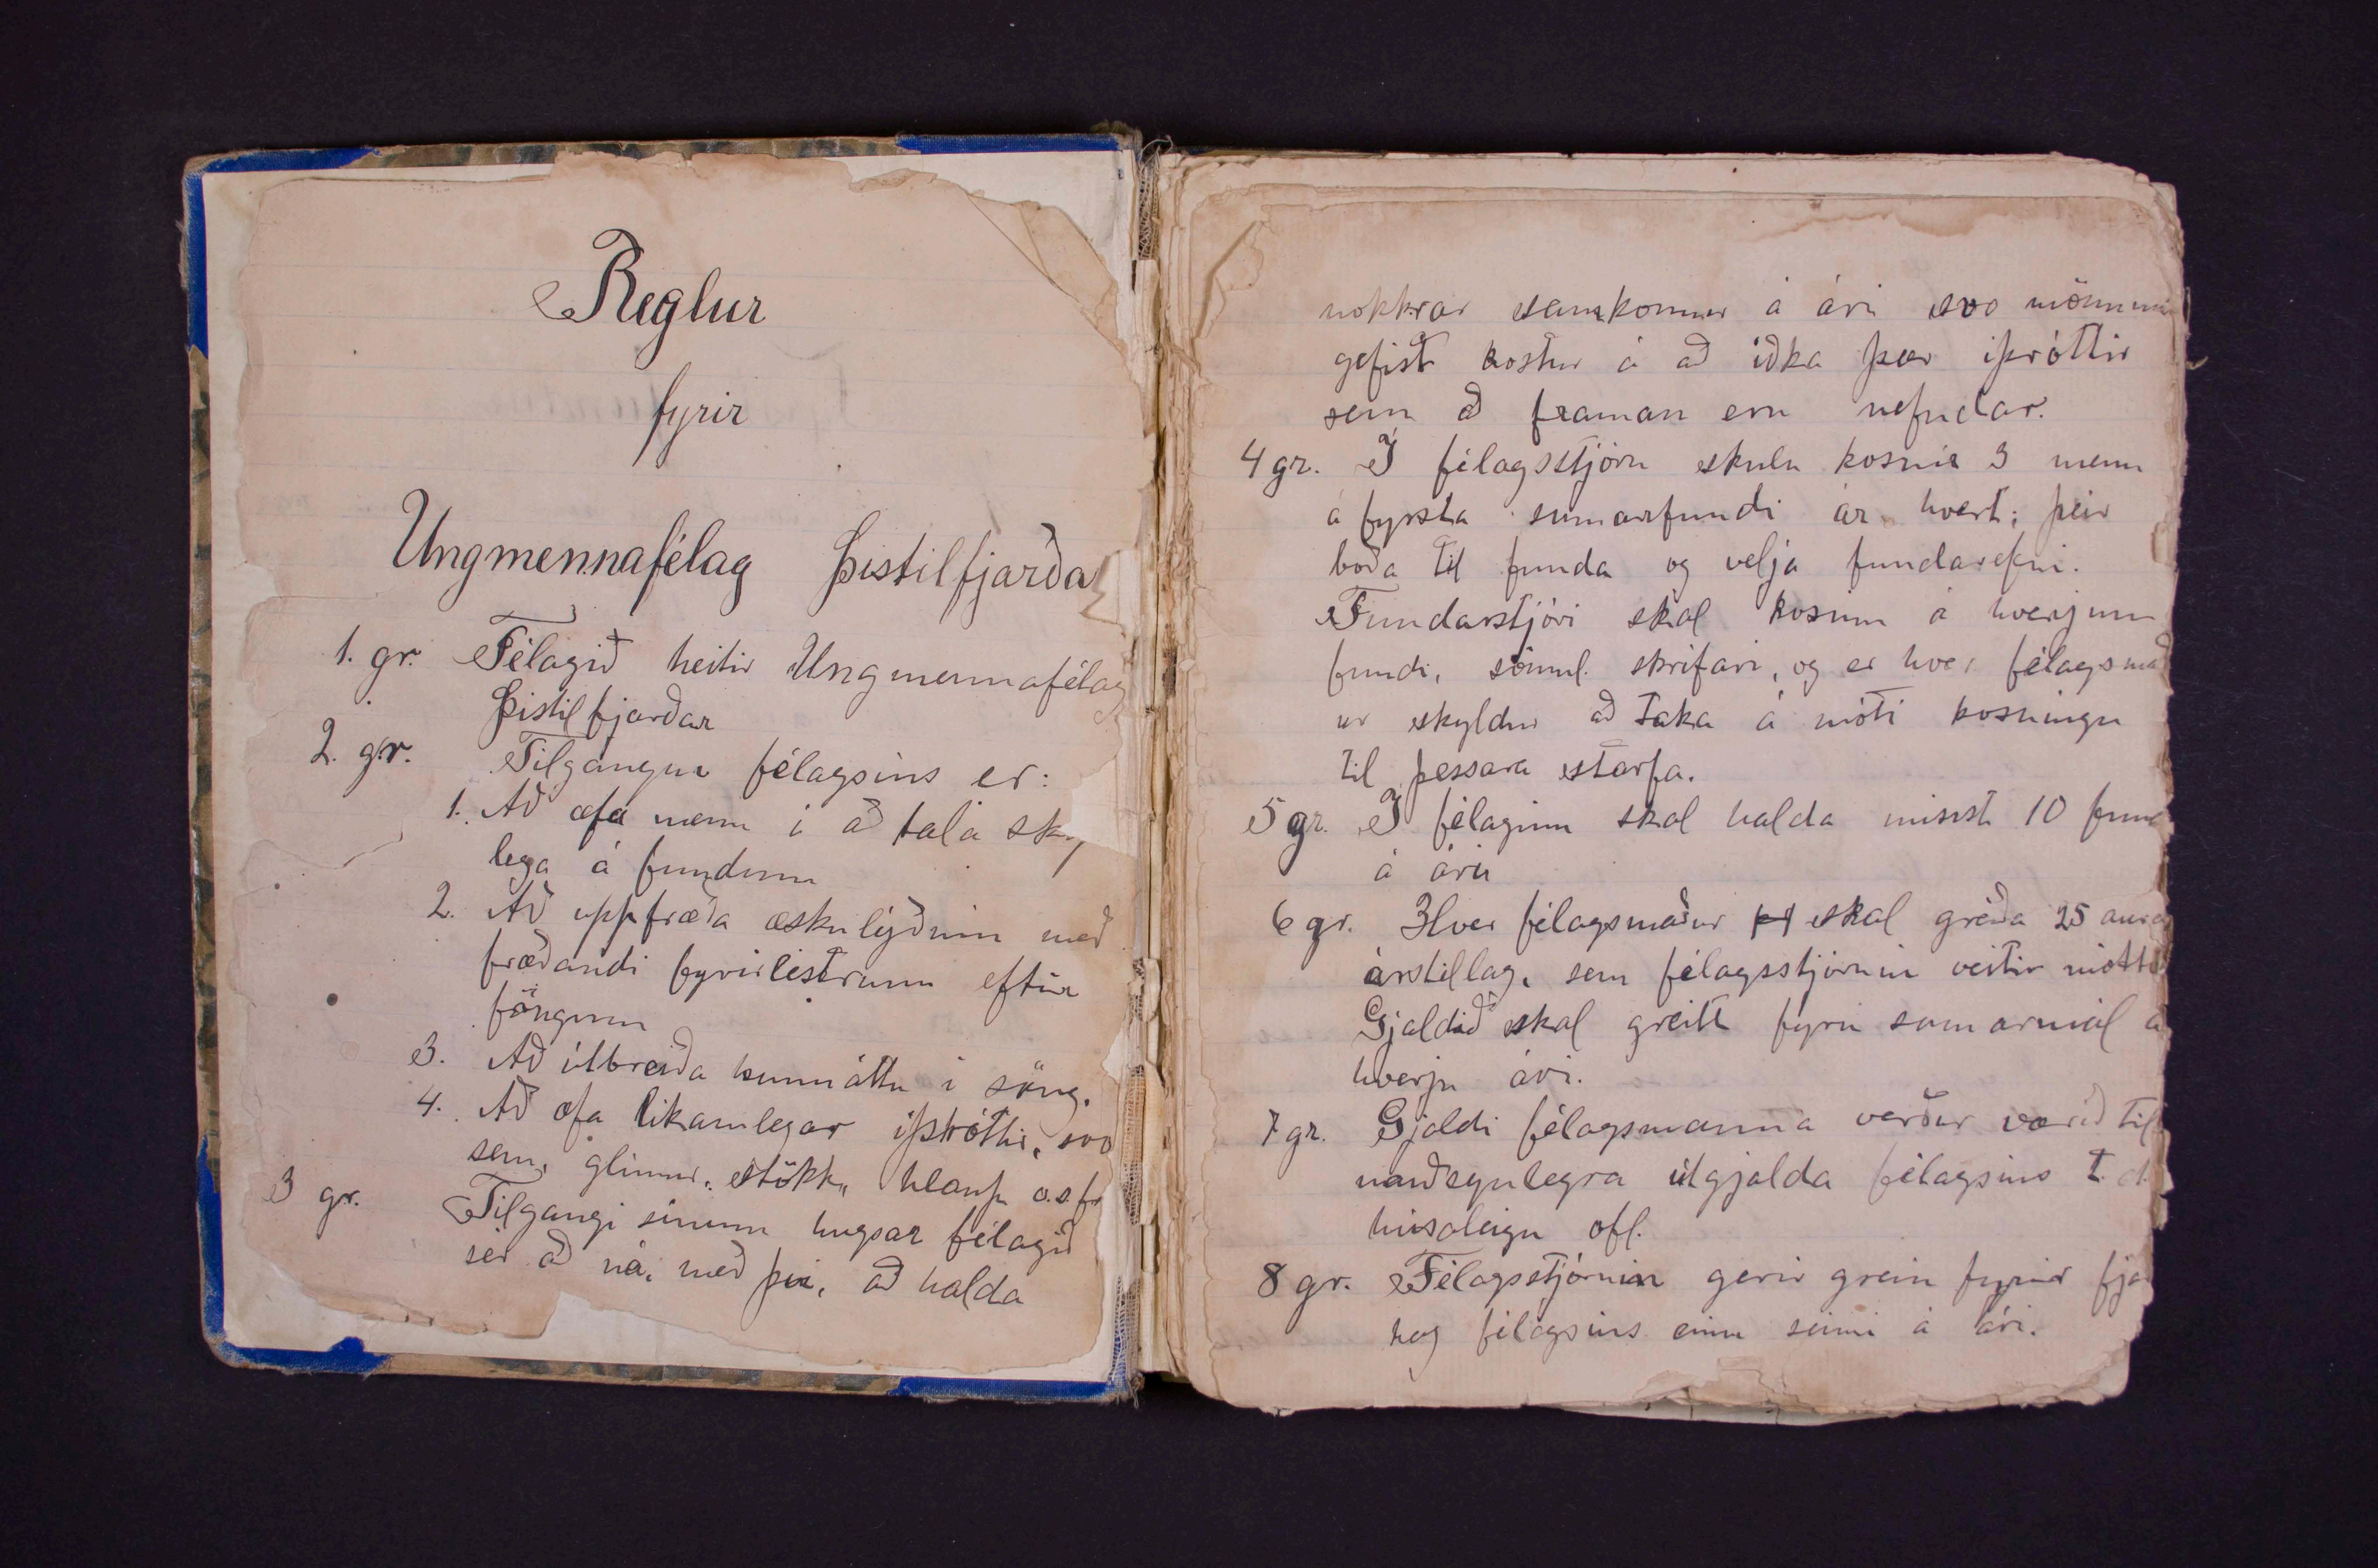 Reglur
fyrir
Ungmennafélag Þistilfjarða
1. gr. Félagið heitir Ungmennafélag
Þistilfjarðar
2. gr. Tilgangur félagsins er:
1. Að æfa menn í að tala sky
lega á fundum
2. Að uppfræða æskulýðinn með
fræðandi fyrirlestrum eftir
föngum
3. Að útbreiða kunnáttu í söng.
4. Að æfa líkamlegar íþróttir, svo
sem, glímur, stökk, hlaup o.s.fr
3 gr. Tilgangi sínum hugsar félagið
sér að ná, með því, að halda
nokkrar samkomur á ári svo mönnum
gefist kostur á að iðka þær íþróttir
sem að framan eru nefndar.
4 gr. Í félagsstjórn skulu kosnir 3 menn
á fyrsta sumarfundi ár hvert; þeir
boða til funda og velja fundarefni.
Fundarstjóri skal kosinn á hverjum
fundi, sömul. skrifari, og er hver félagsmað
ur skyldur að taka á móti kosningu
til þessara starfa.
5 gr. Í félaginu skal halda minst 10 fund
á ári
6 gr. Hver félagsmaður skal greiða 25 aura
árstillag, sem félagsstjórnin veitir mótt
Gjaldið skal greitt fyrir sumarmál á
hverju ári.
7 gr. Gjaldi félagsmanna verður varið til
nauðsynlegra útgjalda félagsins t. d.
húsaleigu ofl.
8 gr. Félagsstjórnin gerir grein fyrir fjá
hag félagsins einu sinni á ári.